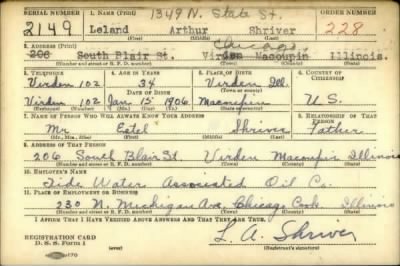 SERIAL NUMBER 1. NAME (Print) 1349 N. State St. ORDER NUMBER
2149 Leland Arthur Shriver 228
(First) (Middle) (Last)
2. ADDRESS (Print) Chicago
206 South Blair St. Virden Macoupin Illinois.
(Number and street or R. F. D. number) (Town) (County) (State)
3. TELEPHONE 4. AGE IN YEARS 5. PLACE OF BIRTH 6. COUNTRY OF CITIZENSHIP
Virden 102 34 Virden Ill.
DATE OF BIRTH (Town)
Virden 102 Jan 15 1906 Macoupin U.S.
(Exchange) (Number) (Mo.) (Day) (Yr.) (State or country)
7. NAME OF PERSON WHO WILL ALWAYS KNOW YOUR ADDRESS 8. RELATIONSHIP OF THAT PERSON
Mr. Estel Shriver Father
(Mr., Mrs., Miss) (First) (Middle) (Last)
9. ADDRESS OF THAT PERSON
206 South Blair St. Virden Macoupin Illinois
(Number and street or R. F. D. number) (Town) (County) (State)
10. EMPLOYER'S NAME
Tide Water Associated Oil Co.
11. PLACE OF EMPLOYMENT OR BUSINESS
230 N. Michigan Ave, Chicago Cook. Illinois
(Number and street or R. F. D. number) (Town) (County) (State)
I AFFIRM THAT I HAVE VERIFIED ABOVE ANSWERS AND THAT THEY ARE TRUE.
REGISTRATION CARD L. A. Shriver
D. S. S. Form 1 (Registrant's signature)